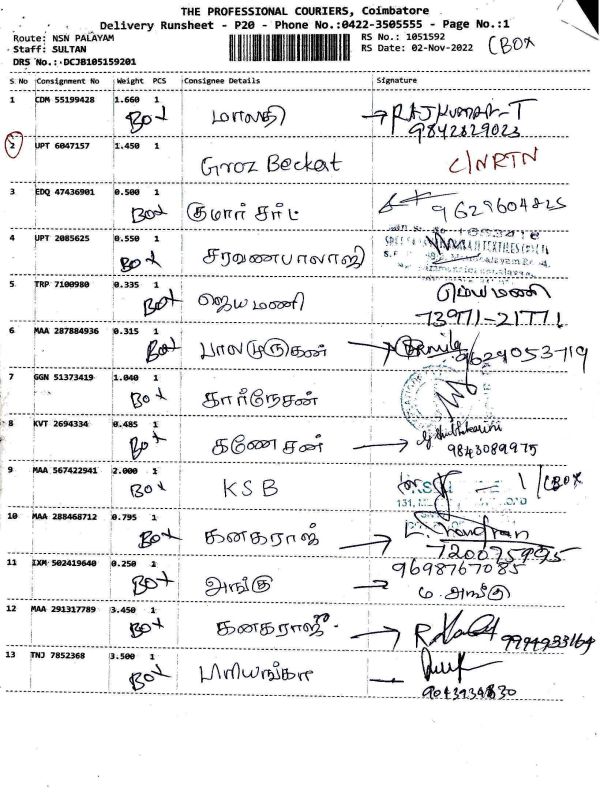 THE PROFESSIONAL COURIERS, Coimbatore
Delivery Runsheet - P20 - Phone No.:0422-3505555 - Page No.:1
Route: NSN PALAYAM RS No.: 1051592
Staff: SULTAN RS Date: 02-Nov-2022 CBOX
DRS No.: DCJB105159201
S No Consignment No Weight PCS Consignee Details Signature
1 CDM 55199428 1.660 1
Box மாலதி → RAJKUMAR-T
9842829023
2 UPT 6047157 1.450 1
Groz Beckert C/NRTN
3 EDQ 47436901 0.500 1
Box குமார் சர்ட் 9629604825
4 UPT 2085625 0.550 1
Box சரவணபாலாஜி
5 TRP 7100980 0.335 1
Box ஜெயமணி ஜெயமணி
73971-21771
6 MAA 287884936 0.315 1
Box பாலமுருகன் → 9629053719
7 GGN 51373419 1.040 1
Box கார்நேசன்
8 KVT 2694334 0.485 1
Box கணேசன் →
9843089975
9 MAA 567422941 2.000 1
Box KSB CBOX
10 MAA 288468712 0.795 1
Box கனகராஜ் →
720075995
11 IXM 502419640 0.250 1 9698767085
Box அங்கு → ம.அங்கு
12 MAA 291317789 3.450 1
Box கனகராஜ் → 9994933164
13 TNJ 7852368 3.500 1
Box பிரியங்கா
9043434830